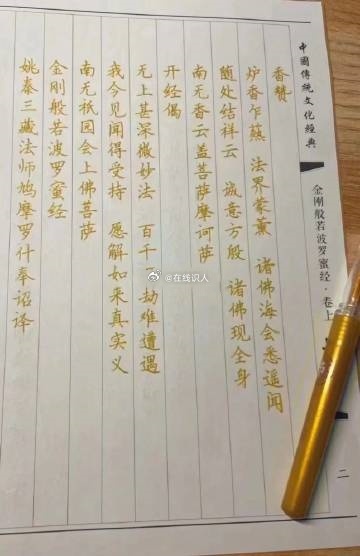 中國傳統文化經典
金剛般若波羅蜜經·卷上
二
香赞
炉香乍爇 法界蒙薰 诸佛海会悉遥闻
随处结祥云 诚意方殷 诸佛现全身
南无香云盖菩萨摩诃萨
开经偈
无上甚深微妙法 百千 劫难遭遇
我今见闻得受持 愿解如来真实义
南无祇园会上佛菩萨
金刚般若波罗蜜经
姚秦三藏法师鸠摩罗什奉诏译
@在线识人